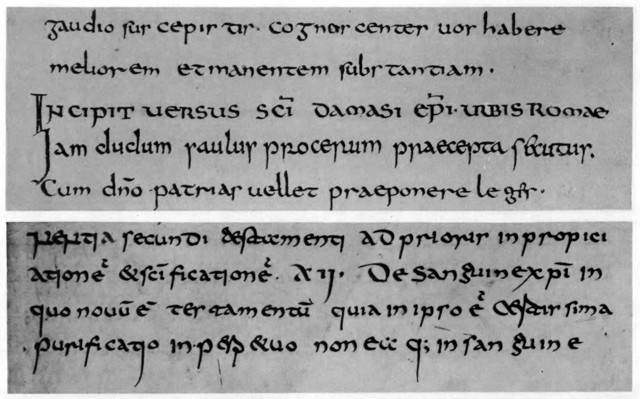 gaudio suscepistis. Cognoscentes uos habere
meliorem et manentem substantiam.
INCIPIT UERSUS SC̄I DAMASI EP̄I·URBIS ROMAE
Iam dudum saulus procerum praecepta secutus.
Cum dn̄o patrias uellet praeponere leges.
secundi testamenti ad prioris in propici
ationē & sc̄ificationē. XII. De sanguine xp̄i in
quo nouū ē testamentū quia in ipso ē certissima
purificatio in non q; in sanguine